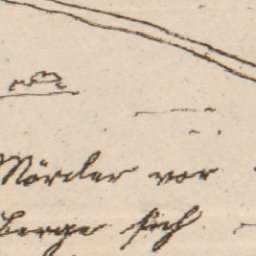 Mörder vor
berge sich